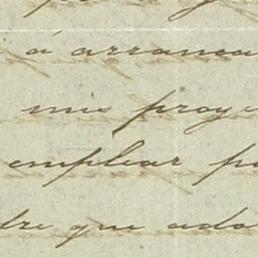 á arranca
mis proye
emplear pa
dre que ado